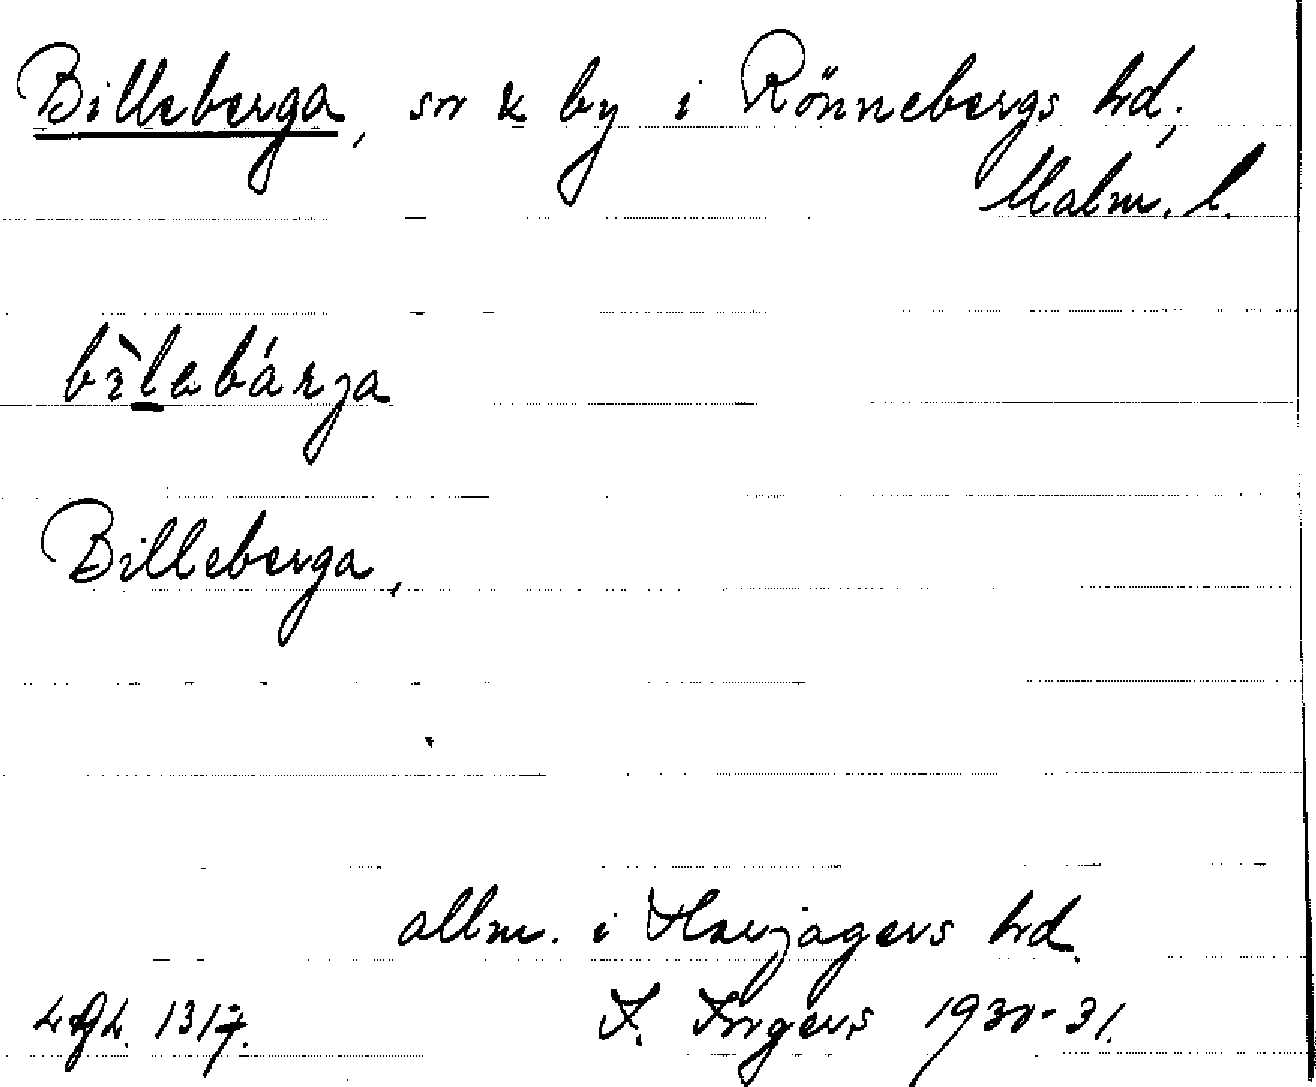 Billeberga, sn & by i Rönnebergs hd,
Malm. l.
bìlebárja
Billeberga,
allm. i Harjagers hd
1317. I. Ingers 1930-31.